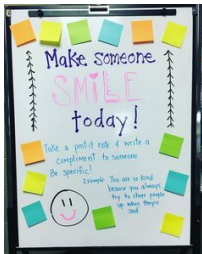 Make someone
SMILE
today!
Take a post-it note & write a
compliment to someone.
Be specific!
Example: You are so kind
because you always
try to cheer people
up when they're
sad.